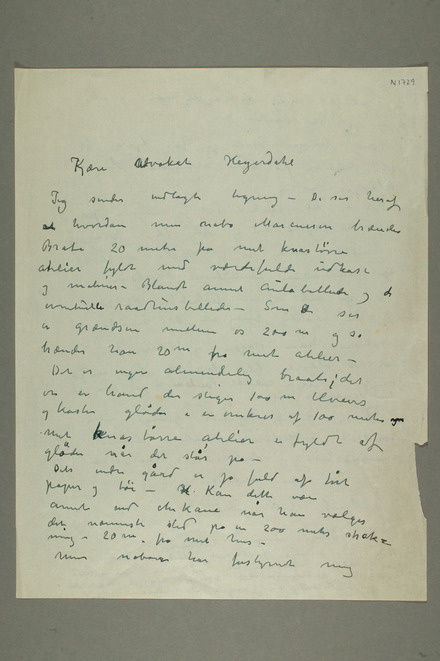 N1729
Kjære Advokat Heyerdahl
Jeg sender tegning – De ser heraf
hvordan min nabo brænder
Bråte 20 meter fra mit knastörre
atelier fyldt med værdifulde udkast
og malerier – Blandt annet Aulabilleder og
eventuelle raadhusbilleder – Som De ser
er grændsen mellem os 200 m og så
brænder han 20 m fra mit atelier –
Det er ingen almindelig braate, det
er et baand der stiger 100 m
og kaster glöder i en omkreds af 100 meter
mit knastörre atelier er fyldt af
glöder når det står på –
Det indre gård er jo fuld af tört
papir og – Kan dette være
annet end chikane når han vælger
det nærmeste sted på en 200 meter stræk=
ning – 20 m fra mit hus –
min nabo har mig